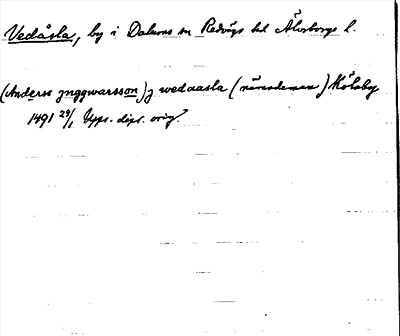 Vedåsla, by i Dalums sn Redvägs hd Älvsborgs l.
(Anderss jnggwarsson) j wedaasla (nämndeman) Kölaby
1491 29/1 Upps. dipl. orig.